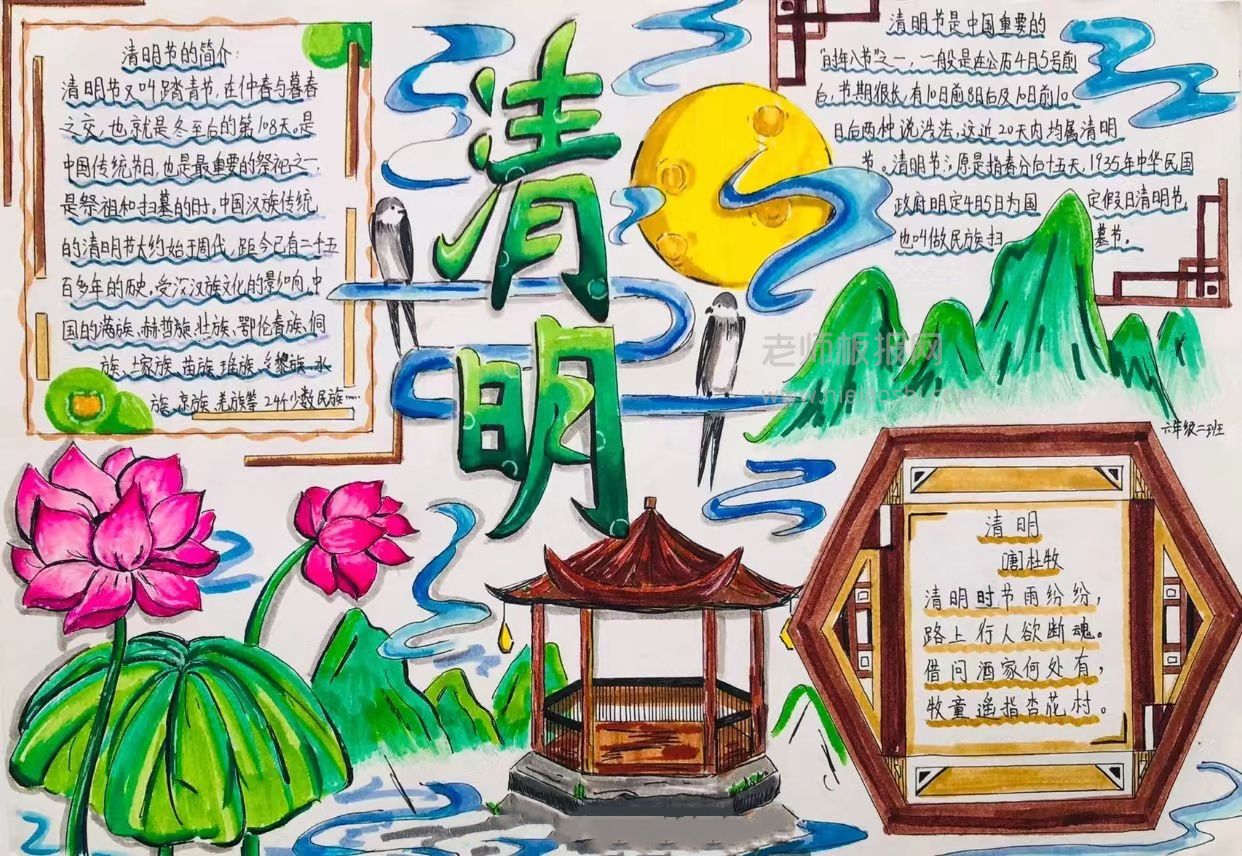 清明节的简介:
清明节又叫踏青节,在仲春与暮春
之交,也就是冬至后的第108天,是
中国传统节日,也是最重要的祭祀之一
是祭祖和扫墓的时,中国汉族传统
的清明节大约始于周代,距今已有二千五
百多年的历史,受汉族文化的影响,中
国的满族、赫哲族、壮族、鄂伦春族、侗
族、土家族、苗族、瑶族、黎族、水
族、京族、羌族等24个少数民族……
清明
清明节是中国重要的
"时年八节"之一,一般是在公历4月5号前
后,节期很长,有10日前8日后及10日前10
日后两种说法,这近20天内均属清明
节。清明节原是指春分后十五天,1935年中华民国
政府明定4月5日为国定假日清明节
也叫做民族扫墓节。
老师板报网
六年级二班
清明
唐杜牧
清明时节雨纷纷,
路上行人欲断魂。
借问酒家何处有,
牧童遥指杏花村。